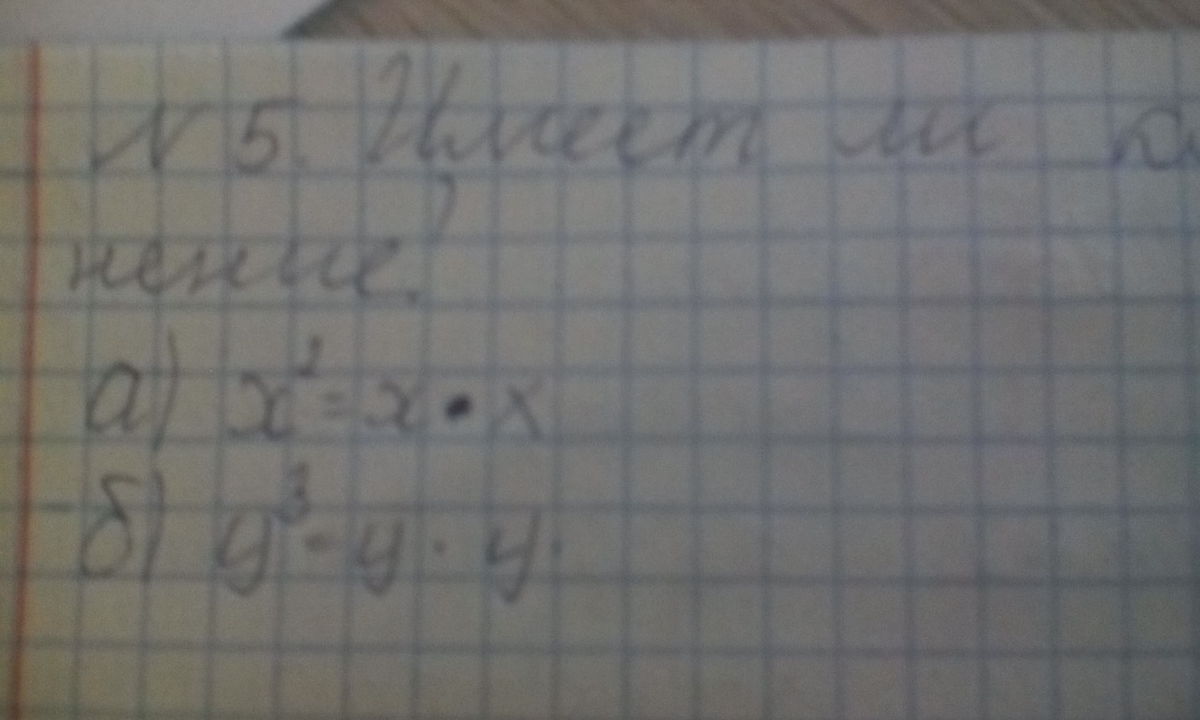 N 5. Имеет ли к
нение?
а) x²= x • x
б) y³= y · y ·